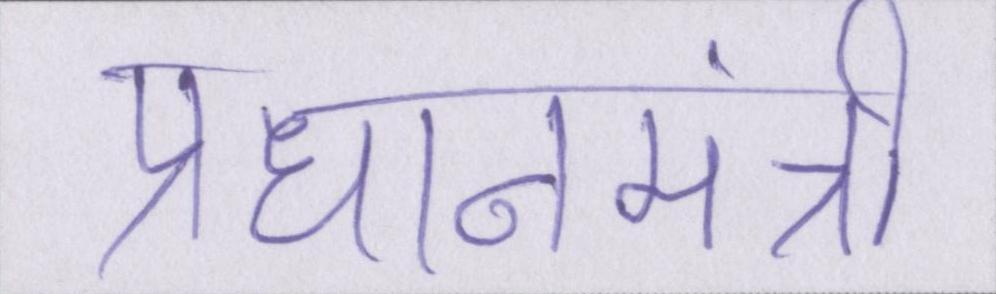 प्रधानमंत्री